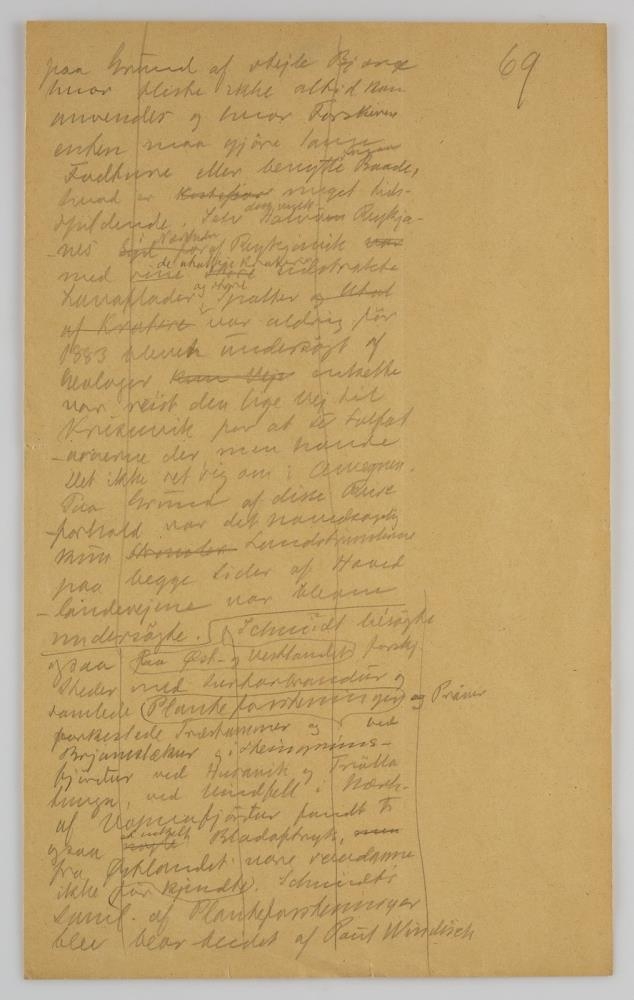 69
paa Grund af stejle Bjærge
hvor Heste ikke altid kan
anvendes og hvor Forskeren
enten maa gjöre lange
Fodture eller benytte Baade,
hvad er meget tids-
spildende. Selv Halvöen Reykja-
nes af Reykjavik
med udstrakte
Lavaflader og Spalter
af Kratere var aldrig för
1883 bleven undersögt af
Geologer enkelte
var reist den lige Vej til
Krisuvik for at se Solfat-
-arerne der men havde
det ikke set sig om i Omegnen.
Paa Grund af disse
-forhold var det hovedsagelig
kun Landstrimlerne
paa begge Sider af Hoved
-landevejene var blevne
undersögte. Schmidt besögte
ogsaa paa Öst- og Vestlandet forskj.
Steder med Surtarbrandur og
samlede Planteforsteninger og Pröver
forkislede Træstammer og ved
Brjamslækur og i Steingrims-
fjördur ved Husavik og Trölla
tunga, ved Vindfell i Nærh.
af Vopnafjördur fandt
ogsaa enkelte Bladaftryk,
fra Östlandet vare saadanne
ikke för kjendte. Schmidts
Saml. af Planteforsteninger
blev bearbeidet af Paul Windisch